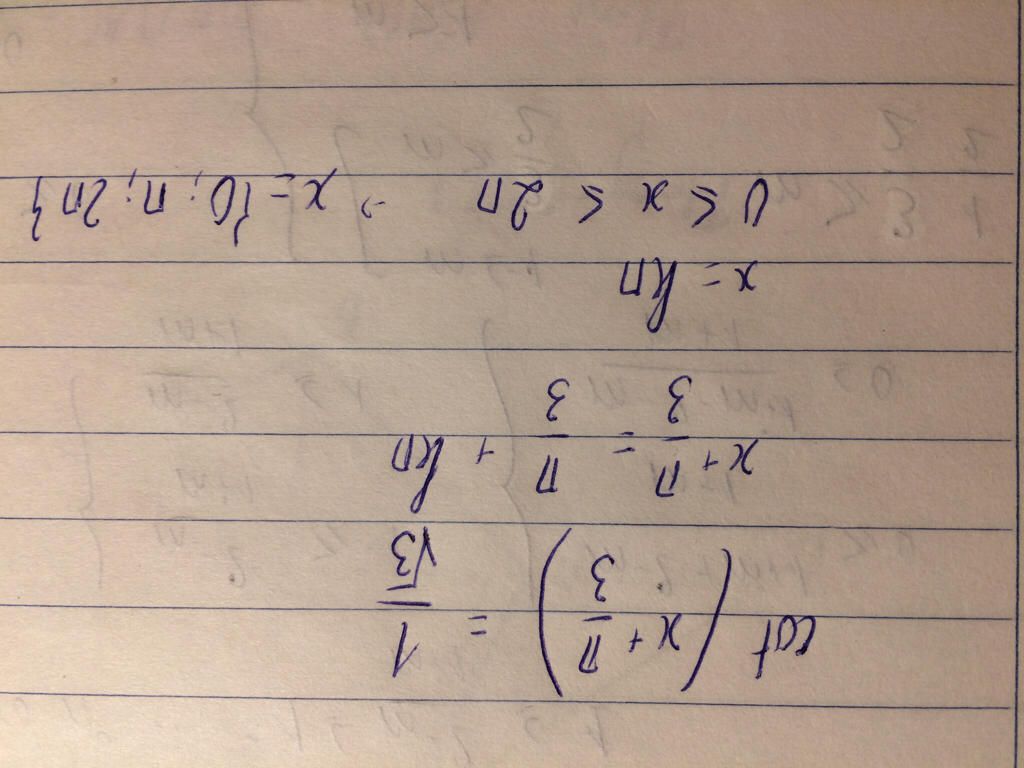 cot (x + π/3) = 1/√3
x + π/3 = π/3 + kπ
x = kπ
0 ≤ x ≤ 2π → x = {0; π; 2π}